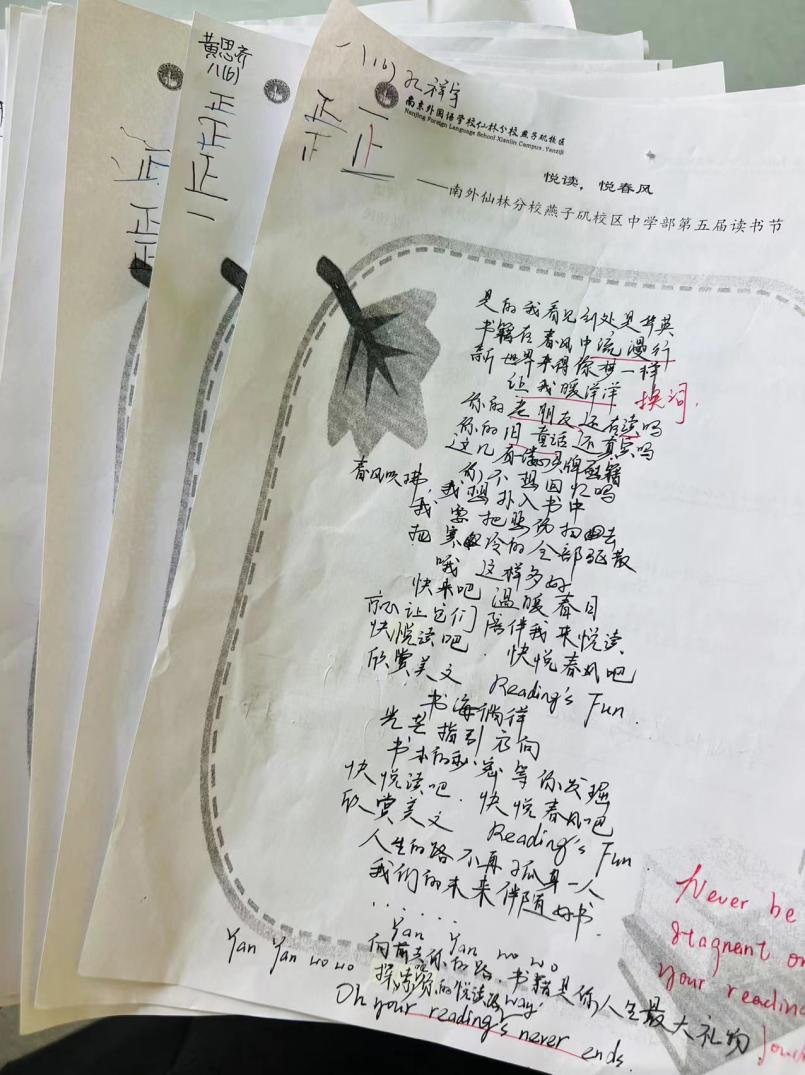 黄思齐
八(6)
正
正
正
一
正
正
八(6) 孔祥宇
正
一
正
南京外国语学校仙林分校燕子矶校区
Nanjing Foreign Language School Xianlin Campus, Yanziji
悦读，悦春风
——南外仙林分校燕子矶校区中学部第五届读书节
是的我看见到处是华英
书籍在春风中流漫行
新世界来得像梦一样
让我暖洋洋
换词.
你的老朋友还在读吗
你的旧童话还真实吗
这几有书籍
你不想回忆吗
春风吹拂,我想扑入书中
我要把忧伤扫出去
把寒冷的全部驱散
哦 这样多好
快来吧 温暖春日
就让它们陪伴我来悦读
快悦读吧. 快悦春风吧
欣赏美文 Reading's Fun.
书海徜徉
光芒指引方向
书本的秘密等你发掘
快悦读吧. 快悦春风吧
欣赏美文 Reading's Fun.
人生的路不再孤身一人
我们的未来伴随好书.
......
Yan Yan wo wo
Yan Yan wo wo 向前去你的路.书籍是你人生最大礼物.
探索的悦读 way.
Oh your reading's never ends.
Never be
stagnant on
your reading